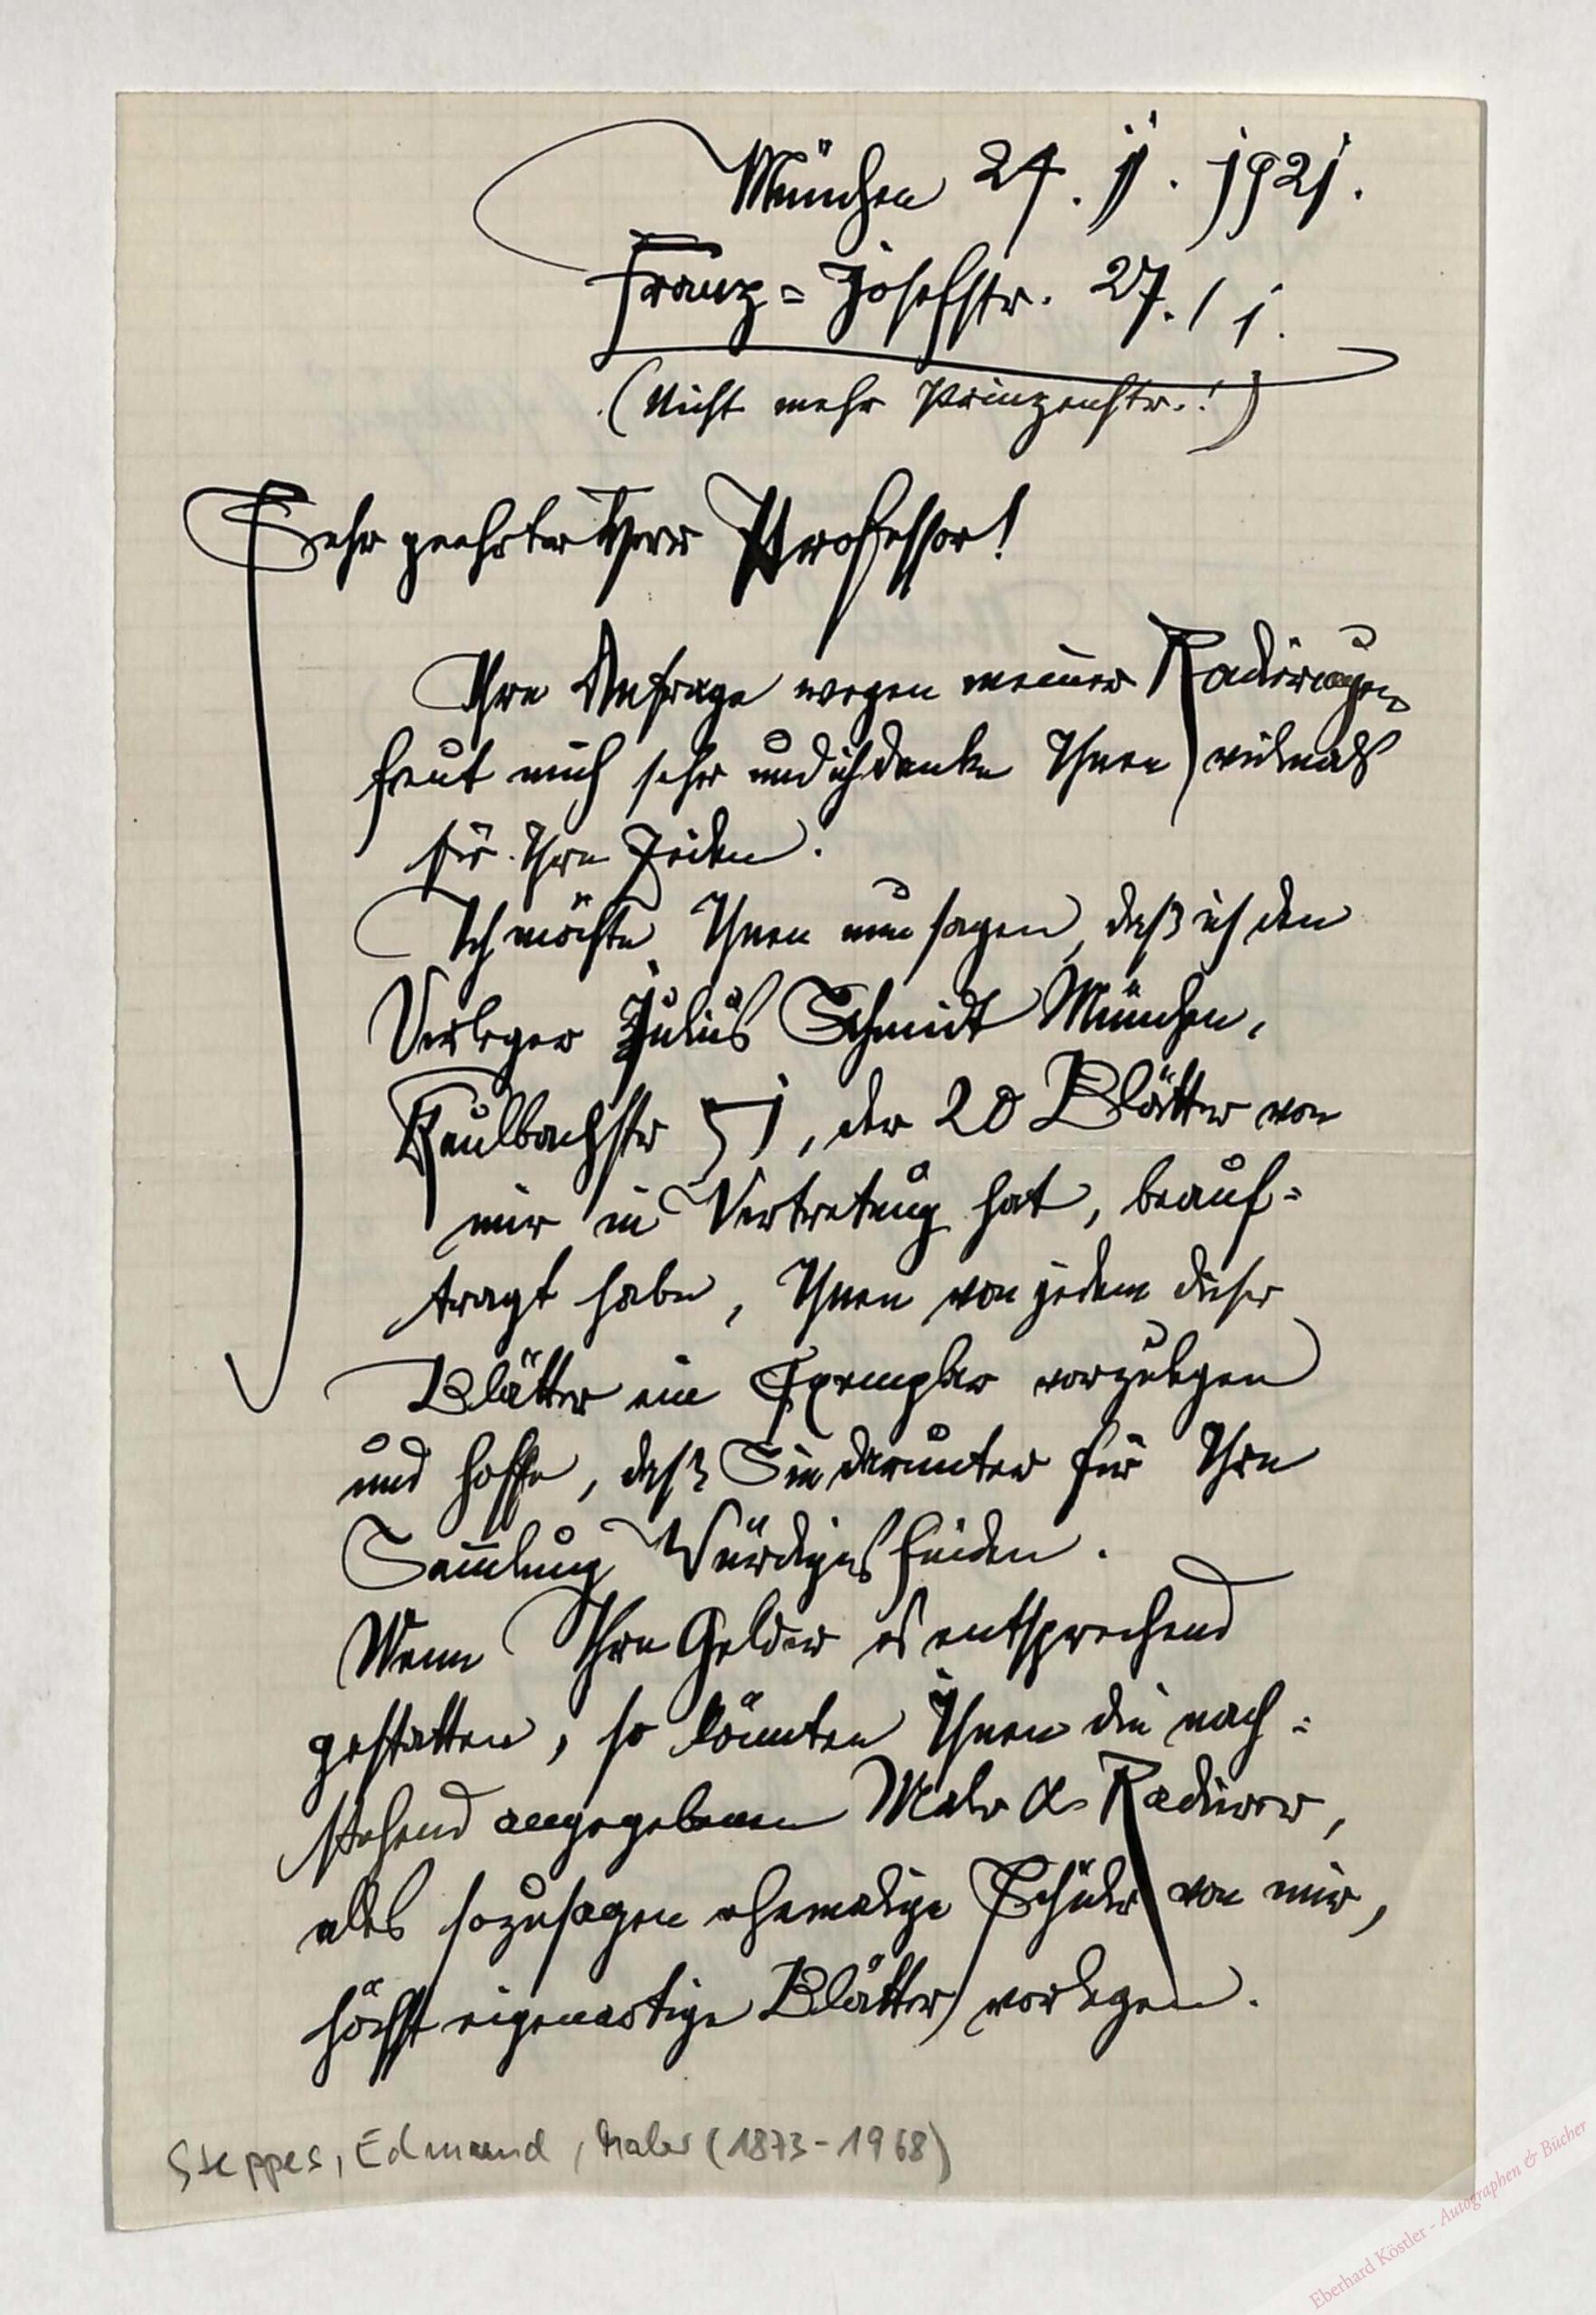 München 24. II. 1921.
Franz = Josefstr. 27. / I.
(Nicht mehr Prinzenstr.!)
Sehr geehrter Herr Professor!
Ihre Anfrage wegen meiner Radirungen
freut mich sehr und ich danke Ihnen vielmals
für Ihre Zeilen.
Ich möchte Ihnen nun sagen, daß ich den
Verleger Julius Schmidt München,
Kaulbachstr 51, der 20 Blätter von
mir in Vertretung hat, beauf=
tragt habe, Ihnen von jedem dieser
Blätter ein Exemplar vorzulegen
und hoffe, daß Sie darunter für Ihre
Sammlung Würdiges finden.
Wenn Ihre Gelder es entsprechend
gestatten, so könnten Ihnen die nach=
stehend angegebenen Maler & Radierer,
alles sozusagen ehemalige Schüler von mir,
höchst eigenartige Blätter vorlegen.
Steppes, Edmund, Maler (1873-1968)
Eberhard Köstler - Autographen & Bücher